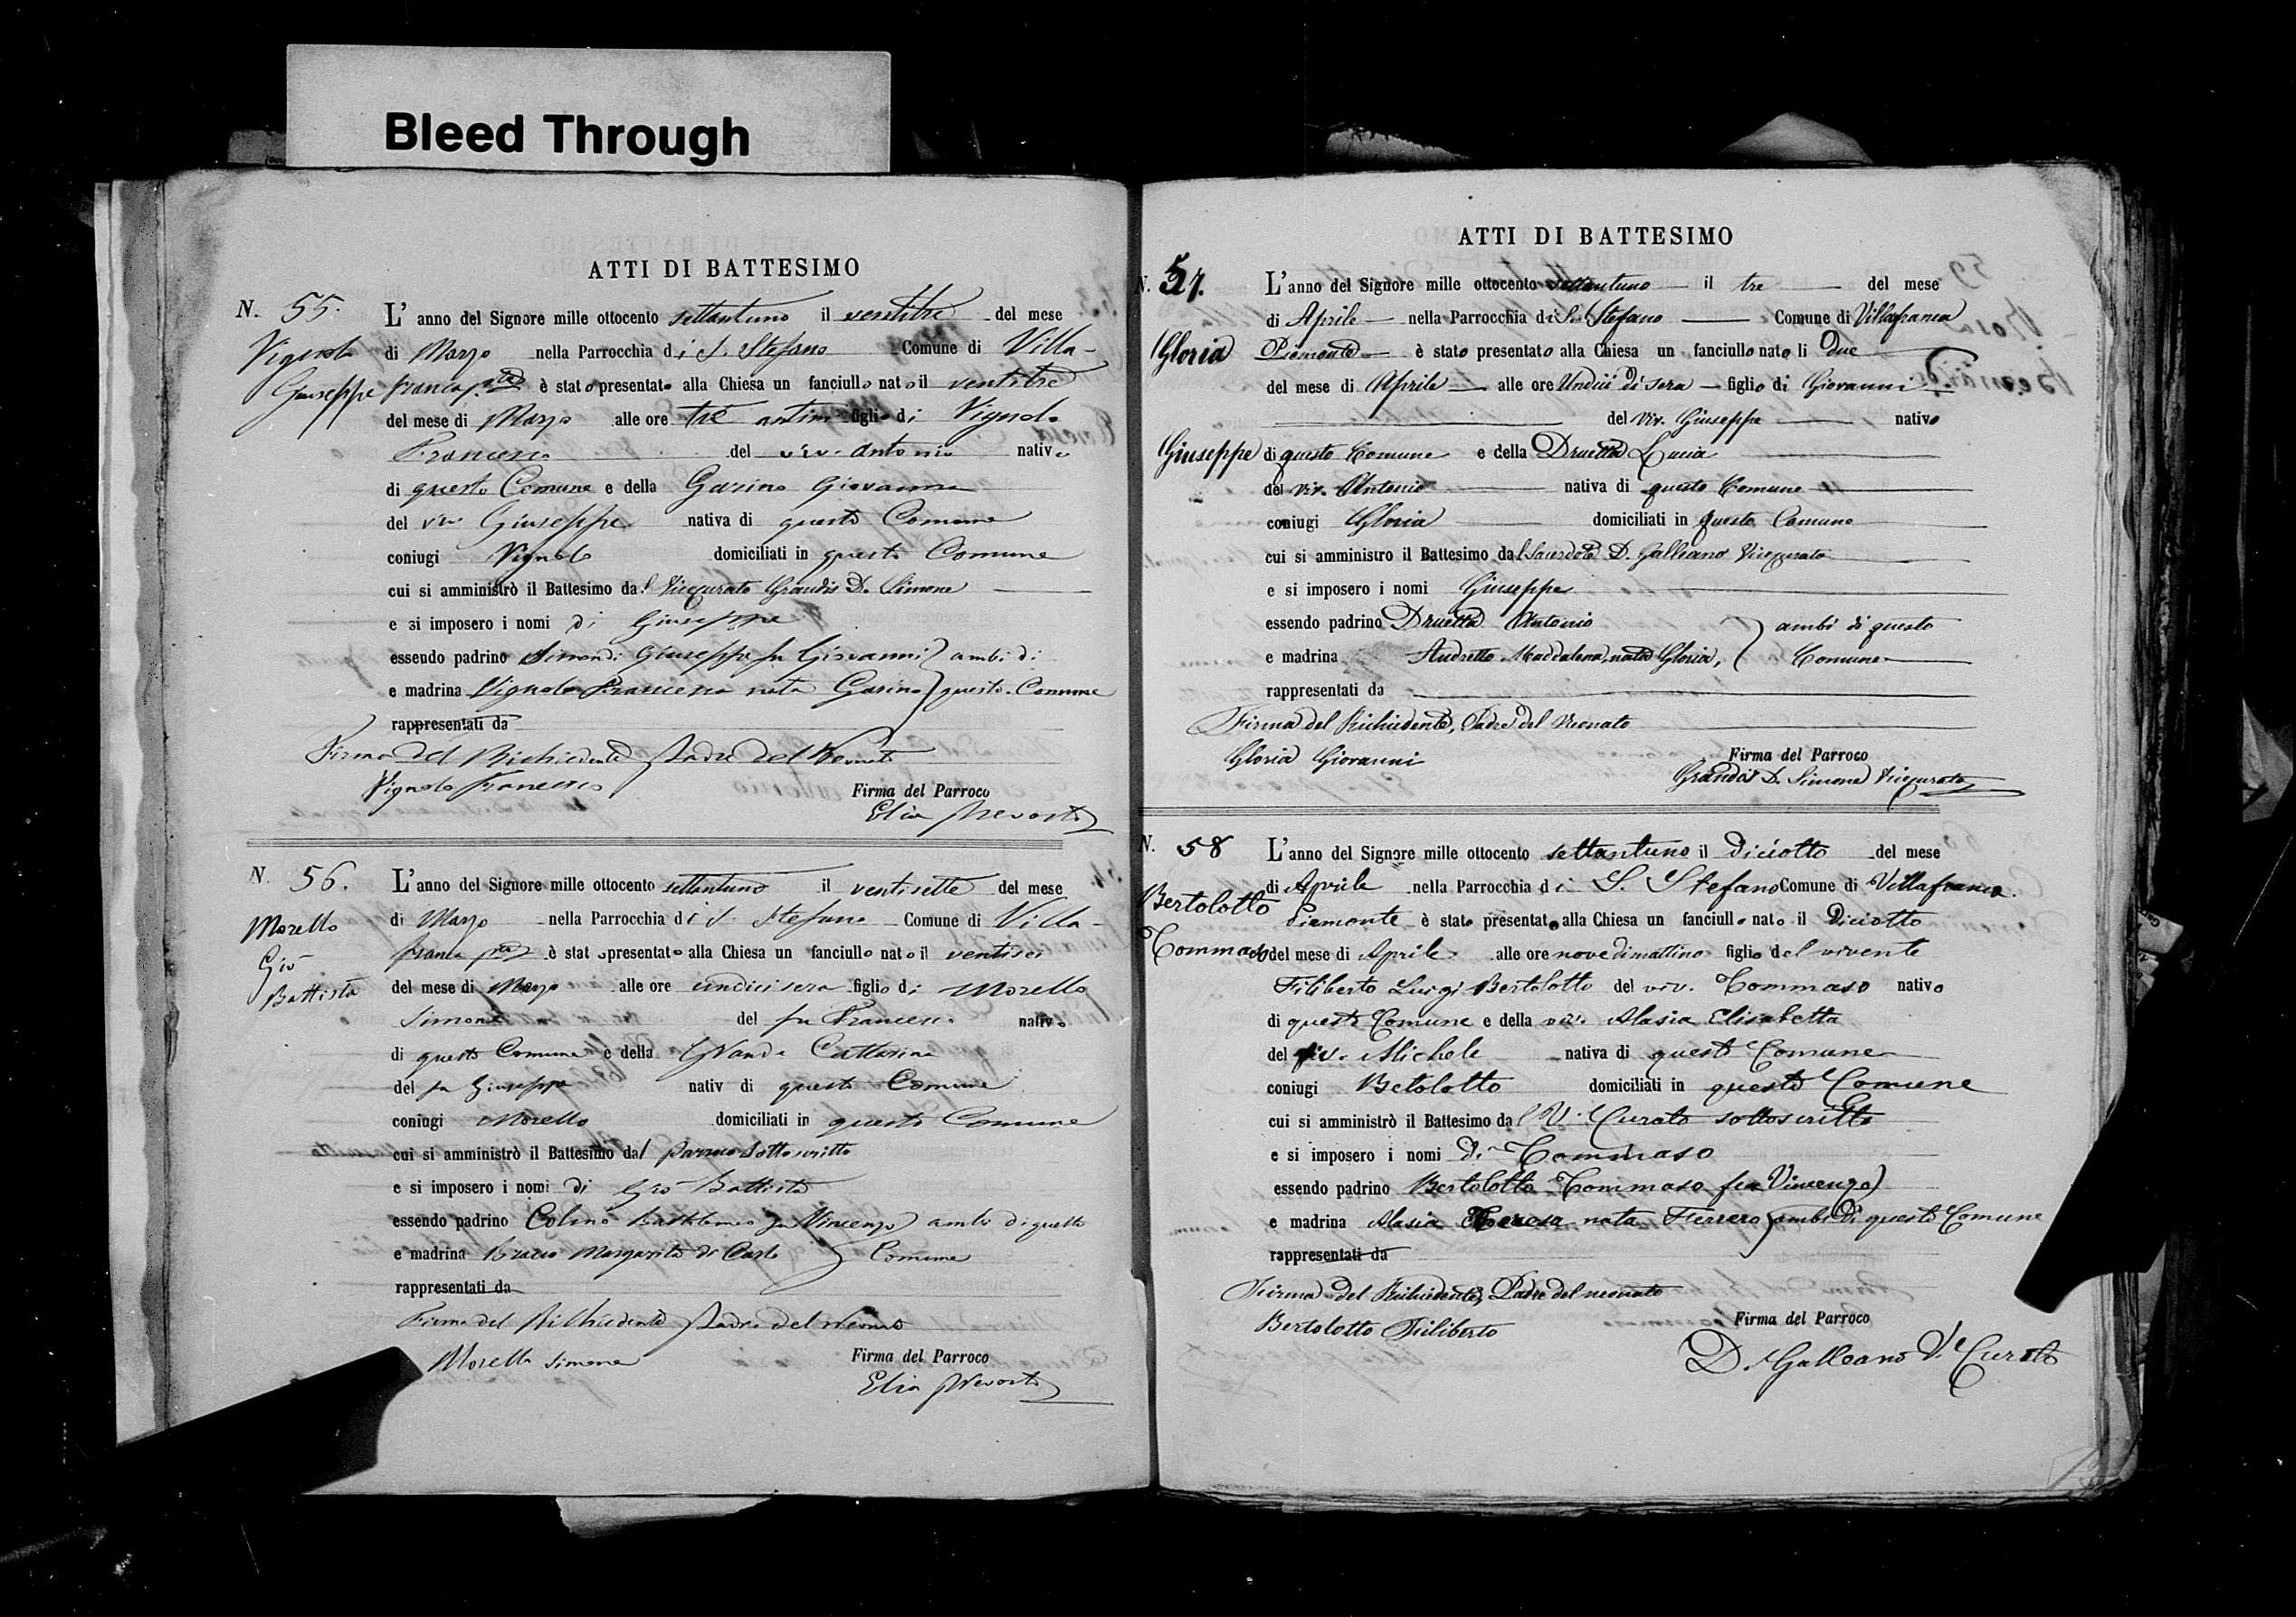 Bleed Through
ATTI DI BATTESIMO
N. 55.
Vignolo
Giuseppe
L'anno del Signore mille ottocento settantuno il ventitre del mese
di Marzo nella Parrocchia di S. Stefano Comune di Villa-
franca è stato presentato alla Chiesa un fanciullo nato il ventitre
del mese di Marzo alle ore tre antim figlio di Vignolo
Francesco del viv. Antonio nativo
di questo Comune e della Garino Giovanna
del viv Giuseppe nativa di questo Comune
coniugi Vignolo domiciliati in questo Comune
cui si amministrò il Battesimo dal Vicecurato Grandis D. Simone
e si imposero i nomi di Giuseppe
essendo padrino Simondi Giuseppe fu Giovanni } ambi di
e madrina Vignolo Francesca nata Garino } questo Comune
rappresentati da
Firma del Richiedente Padre del Neonato
Vignolo Francesco
Firma del Parroco
Elia Prevosto
N. 56.
Morello
Gio
Battista
L'anno del Signore mille ottocento settantuno il ventisette del mese
di Marzo nella Parrocchia di S. Stefano Comune di Villa-
franca è stato presentato alla Chiesa un fanciullo nato il ventisei
del mese di Marzo alle ore undici sera figlio di Morello
Simone del fu Francesco nativo
di questo Comune e della Grande Catterina
del fu Giuseppe nativ di questo Comune
coniugi Morello domiciliati in questo Comune
cui si amministrò il Battesimo dal parroco sottoscritto
e si imposero i nomi di Gio Battista
essendo padrino Colino Bartolomeo fu Vincenzo } ambi di questo
e madrina Margarita di Carlo } Comune
rappresentati da
Firma del Richiedente Padre del Neonato
Morello Simone
Firma del Parroco
Elia Prevosto
ATTI DI BATTESIMO
N. 57.
Gloria
Giuseppe
L'anno del Signore mille ottocento settantuno il tre del mese
di Aprile nella Parrocchia di S. Stefano Comune di Villafranca
Piemonte è stato presentato alla Chiesa un fanciullo nato li due
del mese di Aprile alle ore Undici di sera figlio di Giovanni
del viv. Giuseppe nativo
di questo Comune e della Druetta Lucia
del viv. Antonio nativa di questo Comune
coniugi Gloria domiciliati in questo Comune
cui si amministro il Battesimo dal Sacerdote D. Galleano Vicecurato
e si imposero i nomi Giuseppe
essendo padrino Druetta Antonio } ambi di questo
e madrina Audretto Maddalena, nata Gloria, } Comune
rappresentati da
Firma del Richiedente, Padre del Neonato
Gloria Giovanni
Firma del Parroco
Grandis D. Simone Vicecurato
N. 58
Bertolotto
Tommaso
L'anno del Signore mille ottocento settantuno il diciotto del mese
di Aprile nella Parrocchia di S. Stefano Comune di Villafranca
Piemonte è stato presentato alla Chiesa un fanciullo nato il diciotto
del mese di Aprile alle ore nove di mattino figlio del vivente
Filiberto Luigi Bertolotto del viv. Tommaso nativo
di questo Comune e della viv. Alasia Elisabetta
del viv. Michele nativa di questo Comune
coniugi Betolotto domiciliati in questo Comune
cui si amministrò il Battesimo dal V. Curato sottoscritto
e si imposero i nomi di Tommaso
essendo padrino Bertolotto Tommaso fu Vincenzo }
e madrina Alasia Teresa nata Ferrero } ambi di questo Comune
rappresentati da
Firma del Richiedente, Padre del neonato
Bertolotto Filiberto
Firma del Parroco
D. Galleano V. Curato